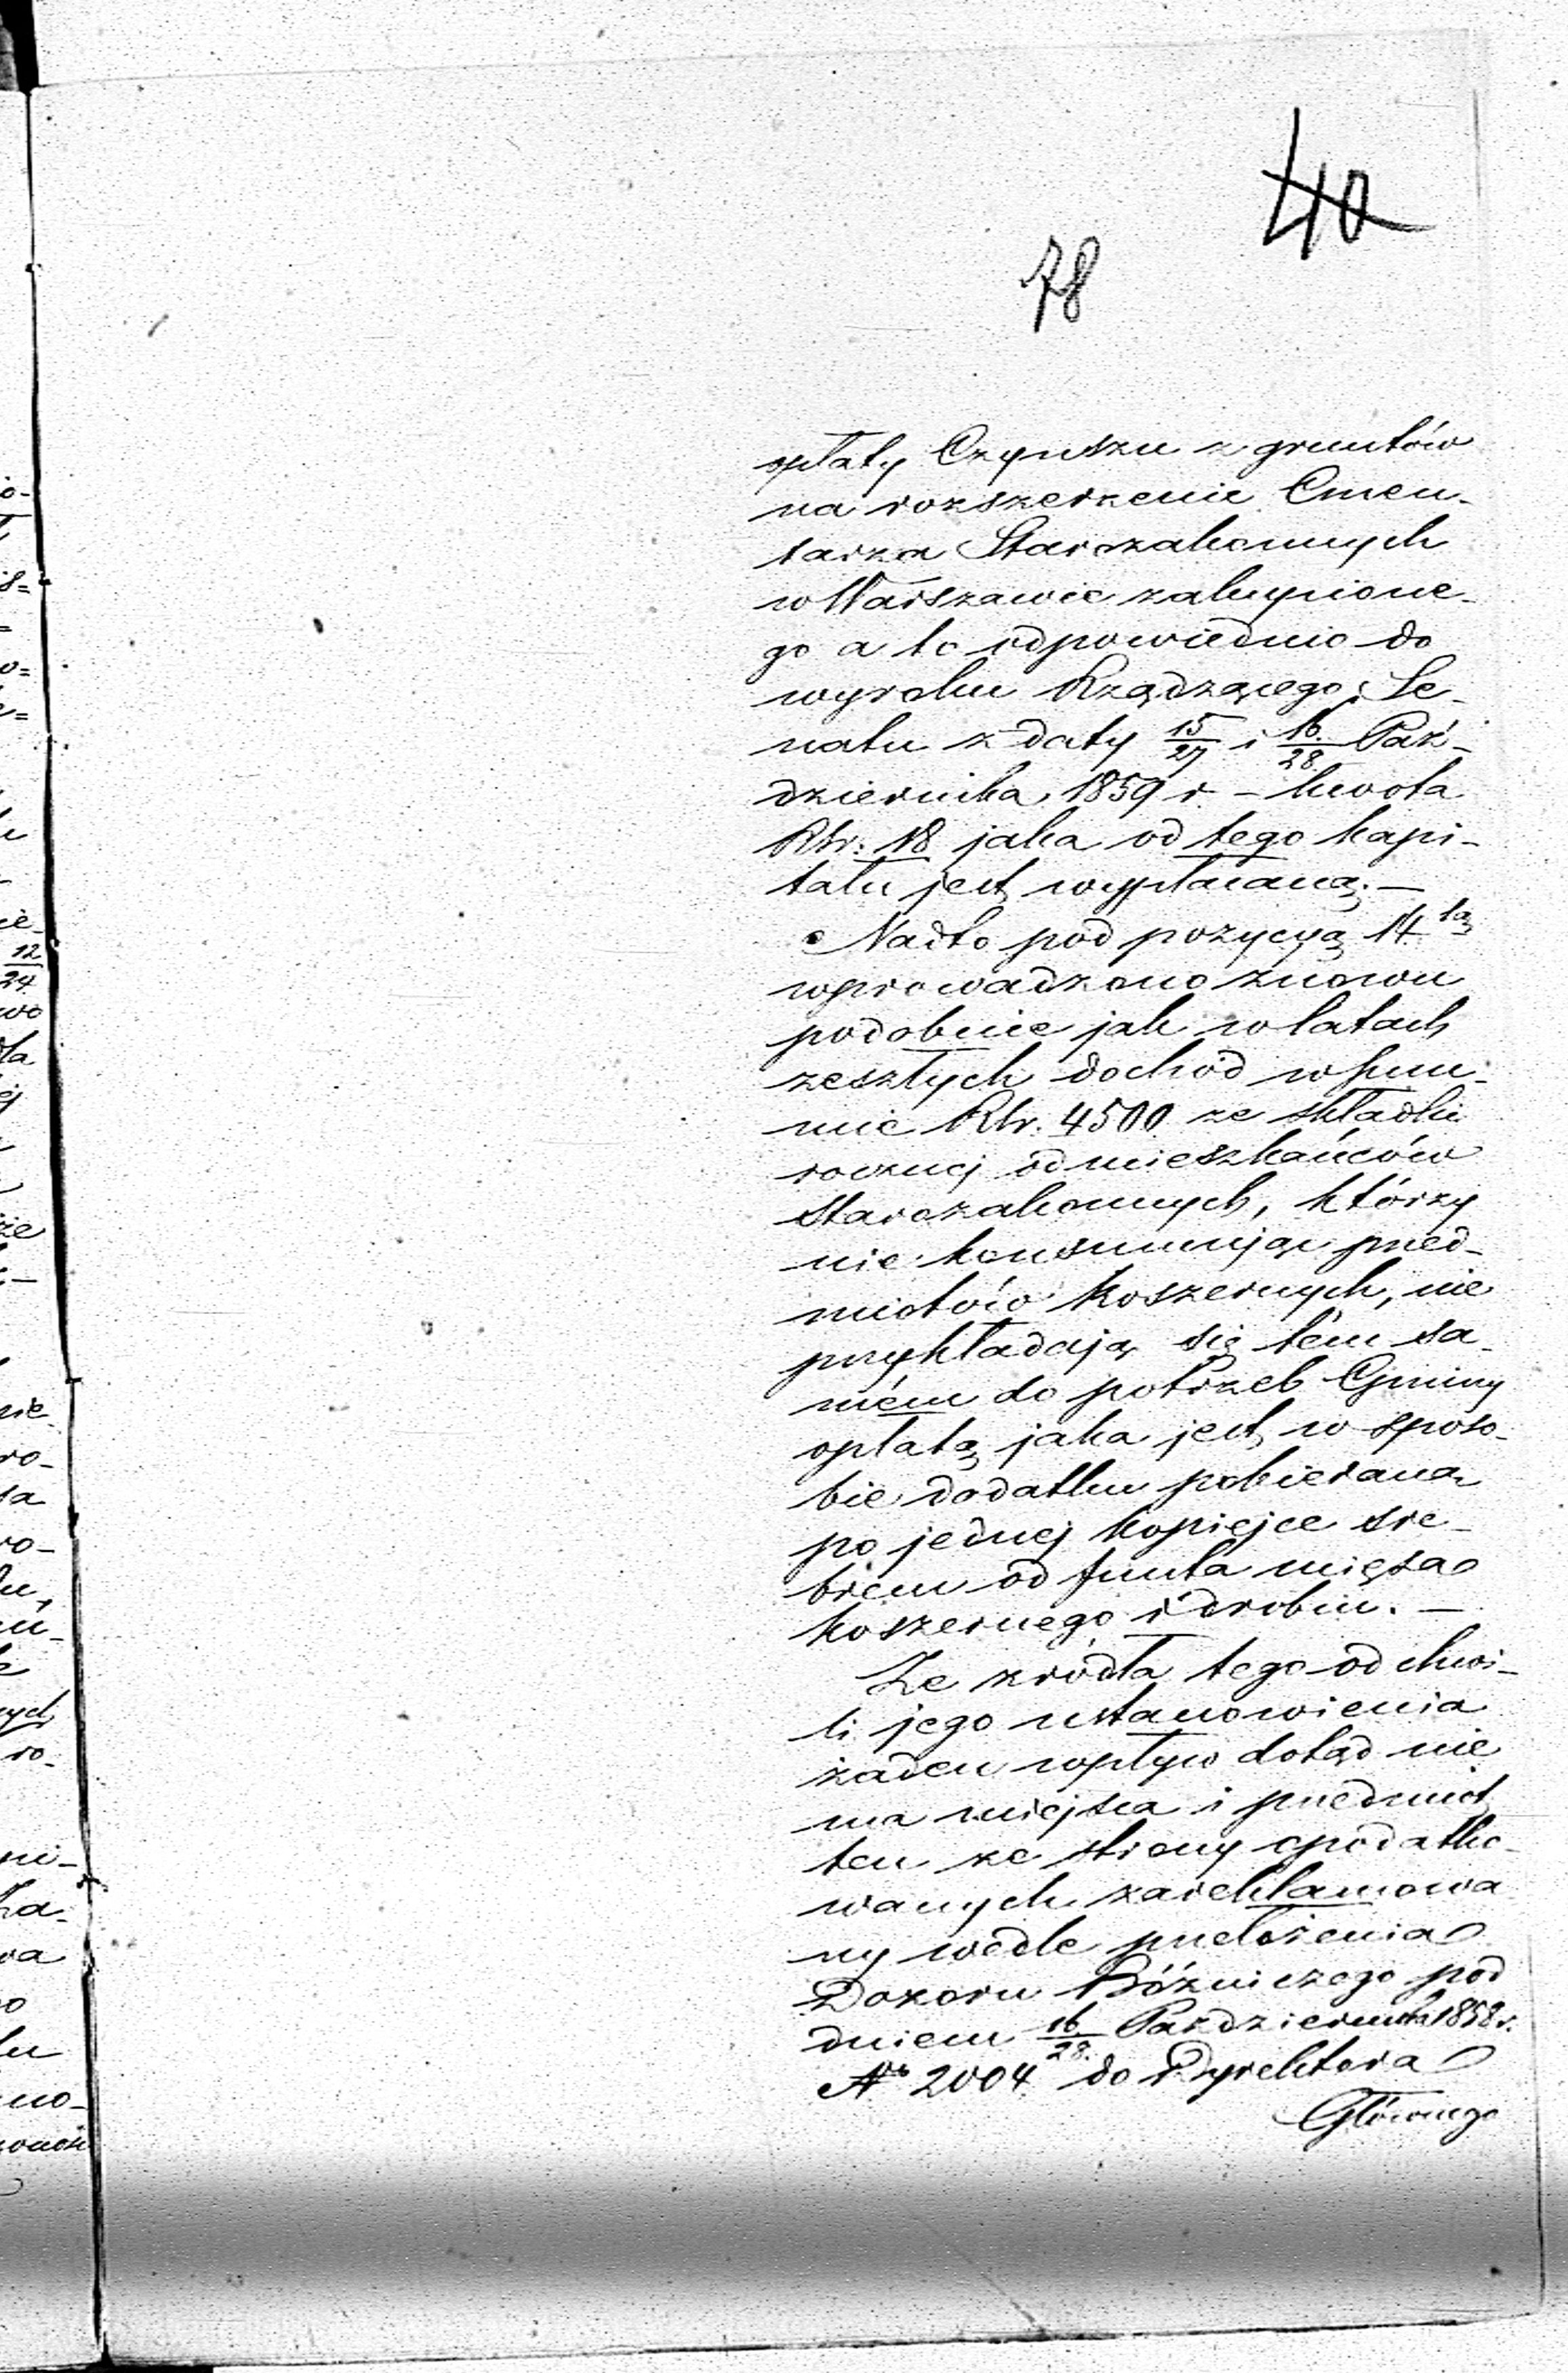 40
78
opłaty Czynszu z gruntów
na rozszerzenie Cmen-
tarza Starozakonnych
w Warszawie zakupione-
go a to odpowiednio do
wyroku Rządzącego Se-
natu z daty 15/27 i 16/28 Paź-
dziernika 1859 r. – kwota
Rsr: 18 jaka od tego kapi-
tału jest wypłacaną. —
Nadto pod pozycyą 14tą
wprowadzono znowu
podobnie jak w latach
zeszłych dochód w sum-
mie Rsr. 4500 ze składki
rocznej od mieszkańców
Starozakonnych, którzy
nie konsumując przed-
miotów koszernych, nie
przykładają się tém sa-
mém do potrzeb Gminy
opłatą jaka jest w sposo-
bie dodatku pobieraną
po jednej kopiejce sre-
brem od funta mięsa
koszernego i drobiu. —
Ze źródła tego od chwi-
li jego ustanowienia
żaden wpływ dotąd nie
ma miejsca i przedmiot
ten ze strony opodatko-
wanych zareklamowa
ny wedle przełożenia
Dozoru Bóźniczego pod
dniem 16/28 Października 1858 r.
No 2004 do Dyrektora
Głównego